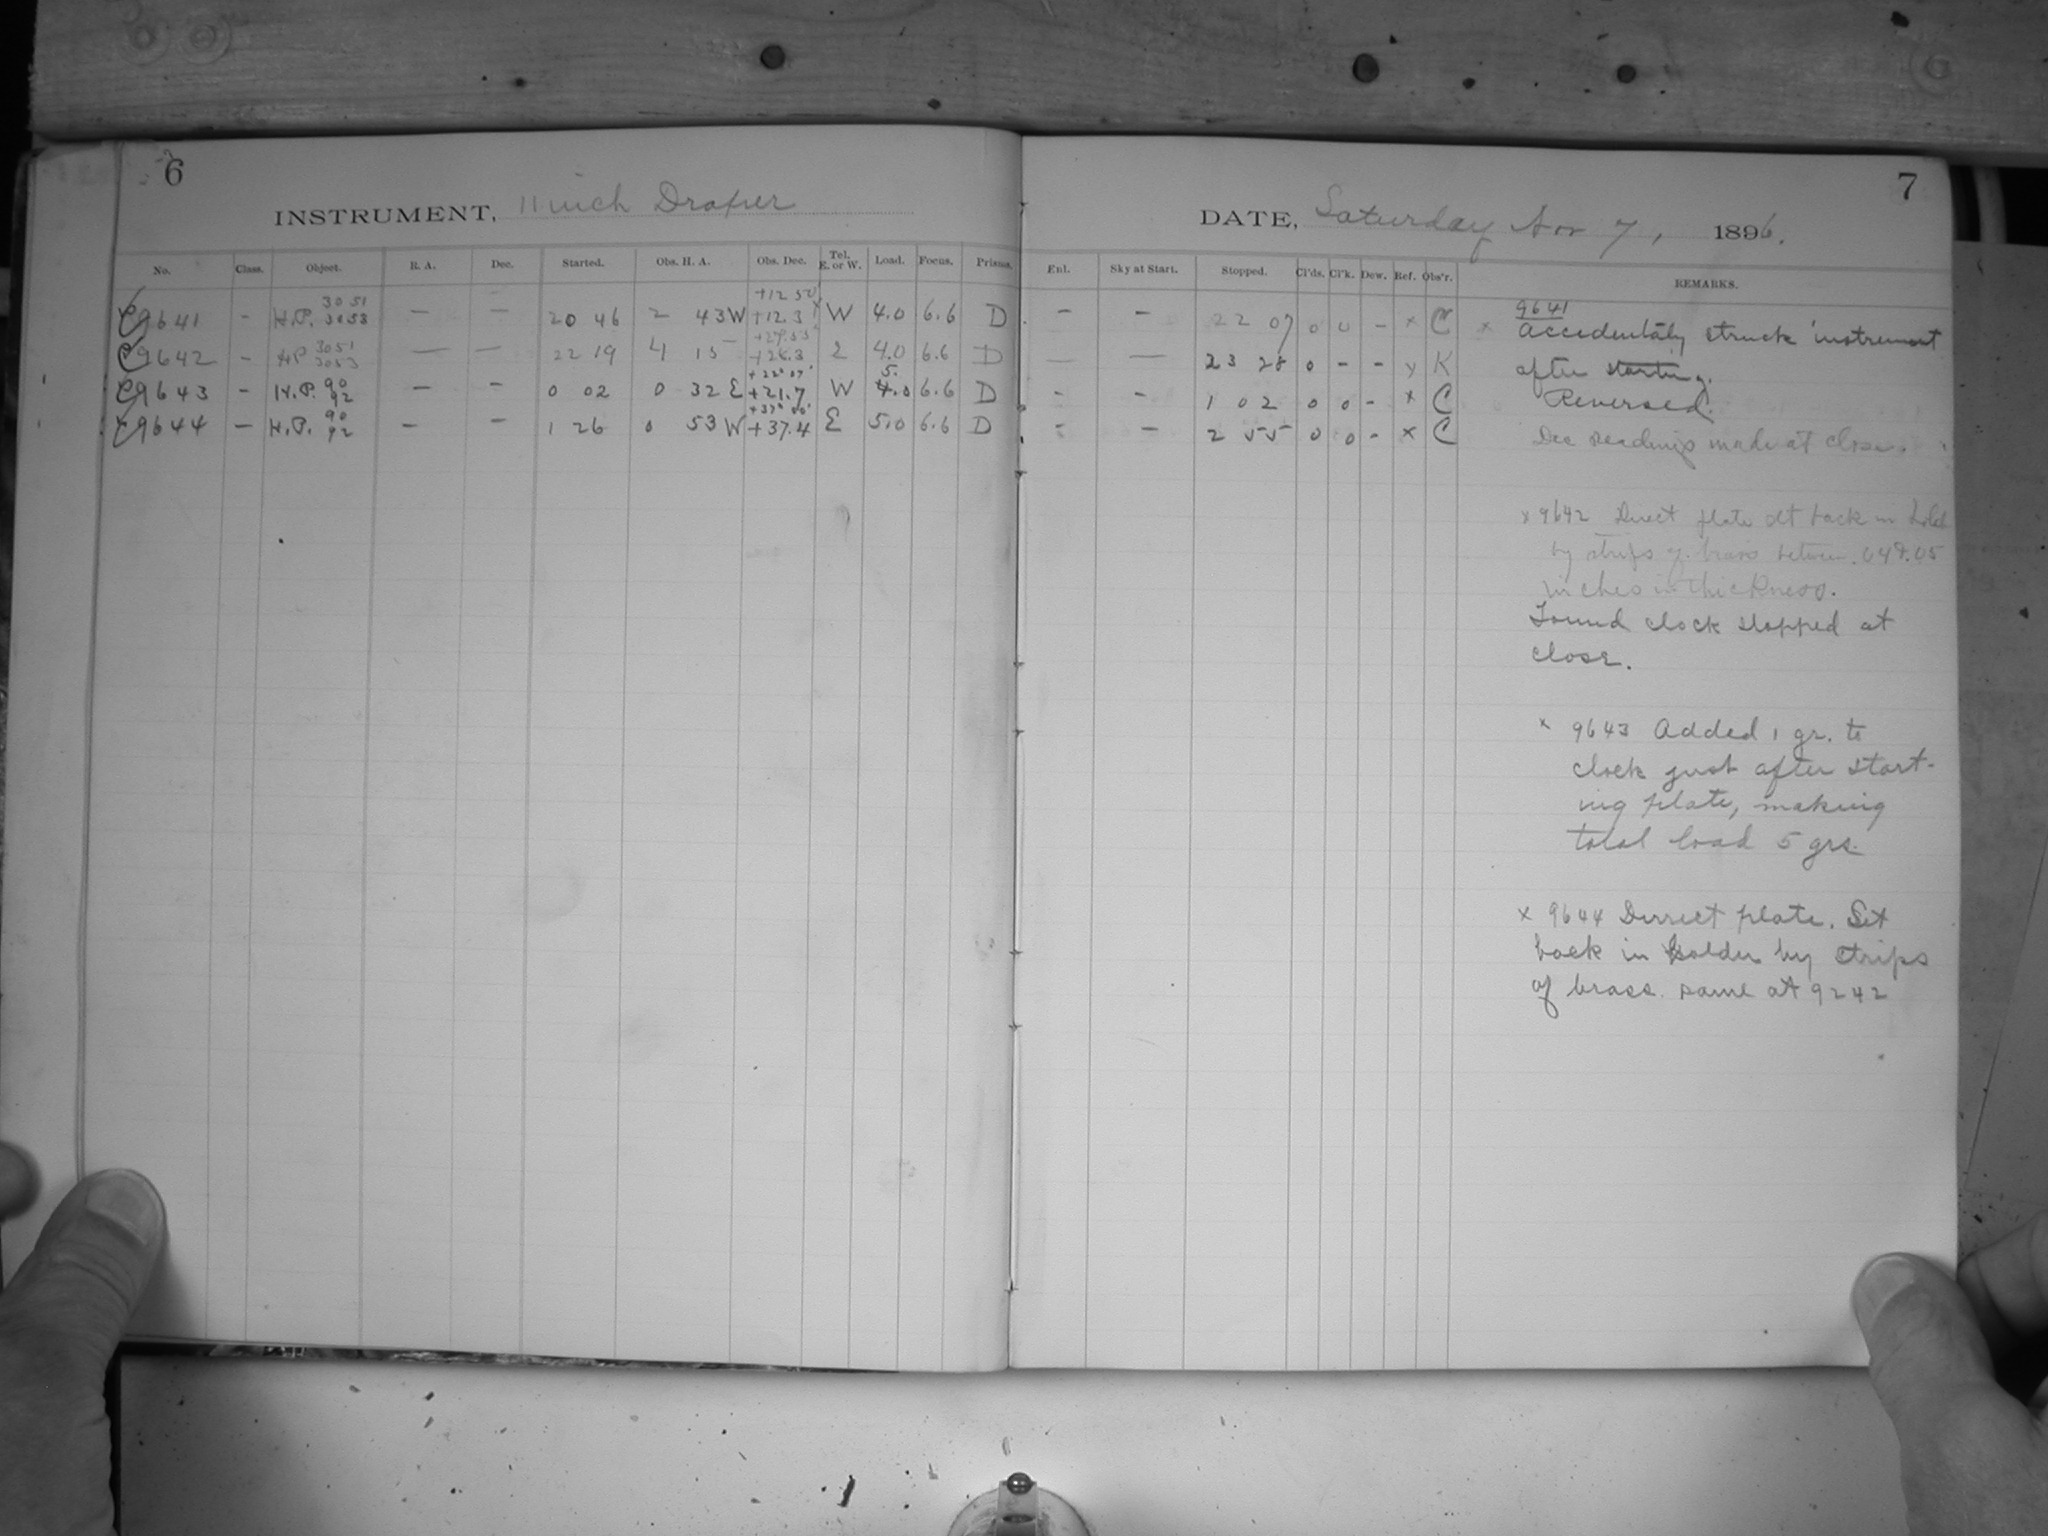 6
INSTRUMENT, 11 inch Draper
No. Class. Object. R. A. Dec. Started. Obs. H. A. Obs. Dec. Tel. E. or W. Load. Focus. Prisms.
C9641 - H.P. 3051 3053 — — 20 46 2 43 W +12.3 W 4.0 6.6 D
C9642 - HP 3051 3053 — — 22 19 4 15 E 4.0 6.6 D
C9643 - H.P. 90 92 — — 0 02 0 32 E +22° 07' +21.7 W 5. 4.0 6.6 D
C9644 — H.P. 90 92 — — 1 26 0 53 W +37.4 E 5.0 6.6 D
7
DATE, Saturday Nov 7, 1896.
Enl. Sky at Start. Stopped. Cl'ds. Cl'k. Dew. Ref. Obs'r. REMARKS.
— — 22 07 0 0 - x C
— — 23 28 0 - - x K
- - 1 02 0 0 - x C
- - 2 55 0 0 - x C
9641
x Accidentally struck instrument
after starting.
Reversed.
Dec readings made at close.
x 9642 Direct plate set back in
by strips of brass between .04 & .05
inches in thickness.
Found clock stopped at
close.
x 9643 Added 1 gr. to
clock just after start-
ing plate, making
total load 5 grs.
x 9644 Dirrect plate. Set
back in holder by strips
of brass. same at 9242